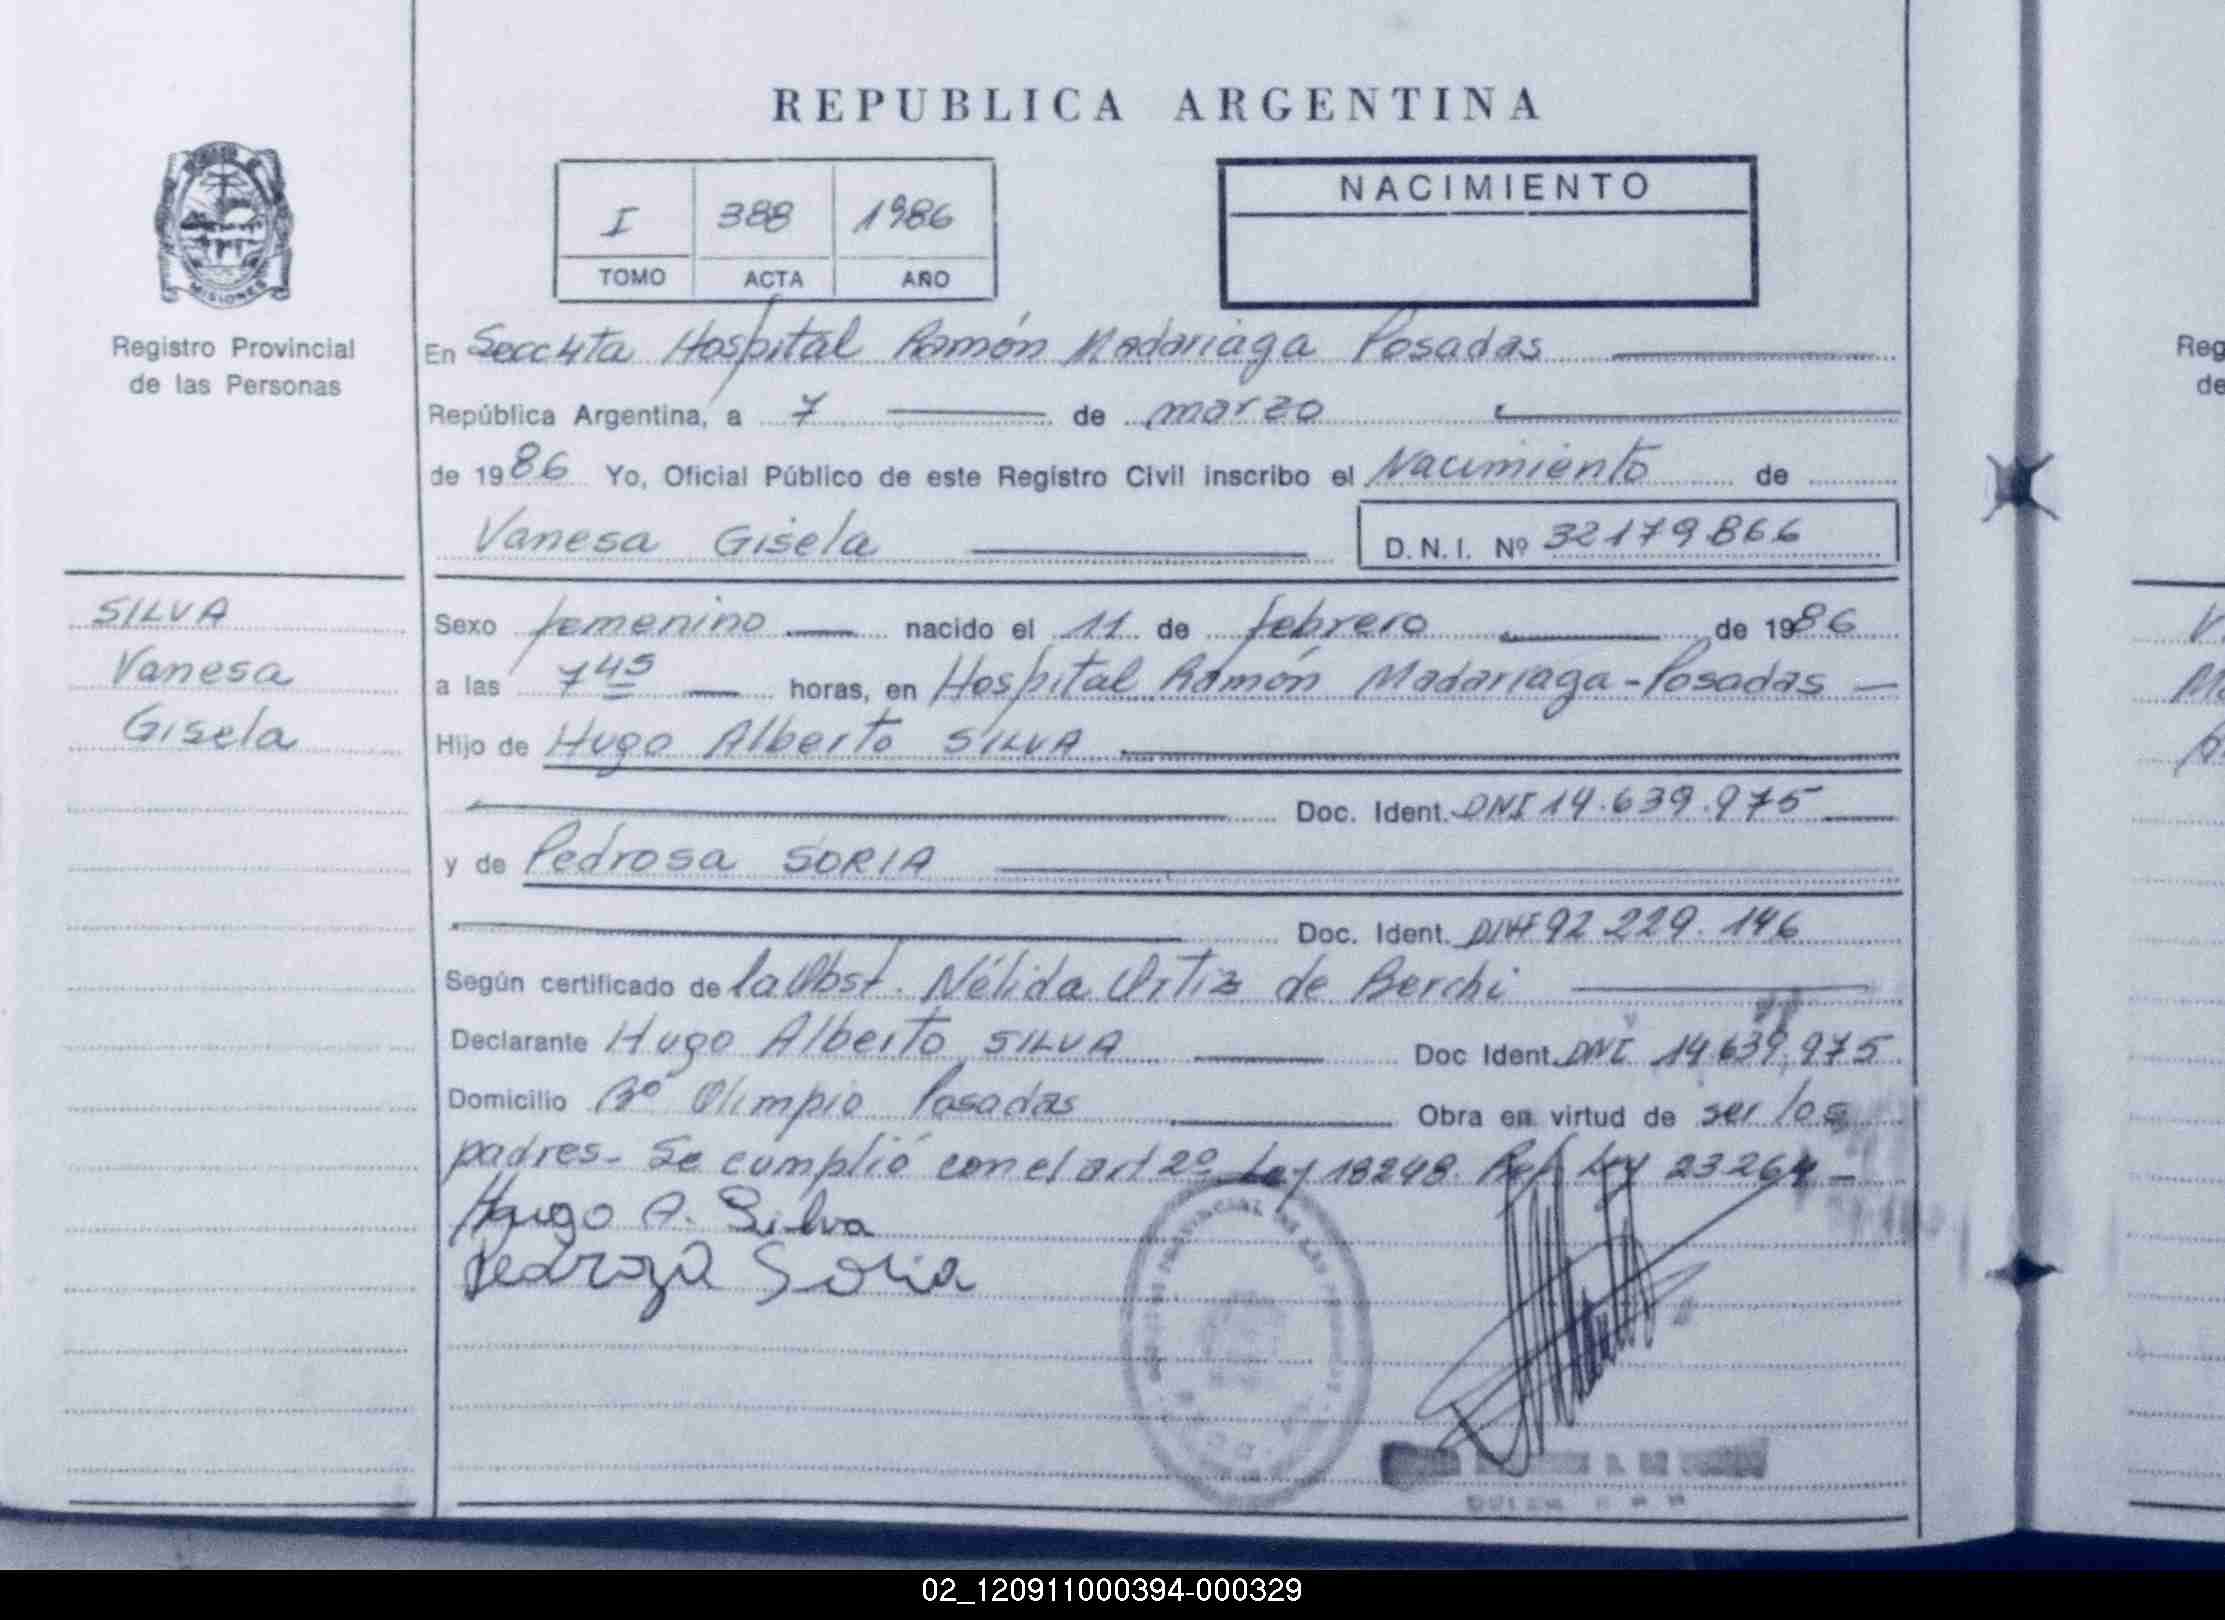 REPUBLICA ARGENTINA
I 388 1986
TOMO ACTA AÑO
NACIMIENTO
MISIONES
Registro Provincial
de las Personas
En Secc 4ta Hospital Ramón Madariaga Posadas
República Argentina, a 7 de marzo
de 1986 Yo, Oficial Público de este Registro Civil inscribo el Nacimiento de
Vanesa Gisela D.N.I. Nº 32179866
SILVA
Vanesa
Gisela
Sexo femenino nacido el 11 de febrero de 1986
a las 7 45 horas, en Hospital Ramón Madariaga - Posadas -
Hijo de Hugo Alberto SILVA
Doc. Ident. DNI 14.639.975
y de Pedrosa SORIA
Doc. Ident. 92.229.146
Según certificado de la Obst. Nélida Ortiz de Berchi
Declarante Hugo Alberto SILVA Doc Ident. DNI 14.639.975
Domicilio Bº Olimpio Posadas Obra en virtud de ser los
padres - Se cumplió con el art 2º Ley 18248. Ref. Ley 23264 -
Hugo A. Silva
Pedroza Soria
PROVINCIAL DE LAS
Reg
de
02_120911000394-000329